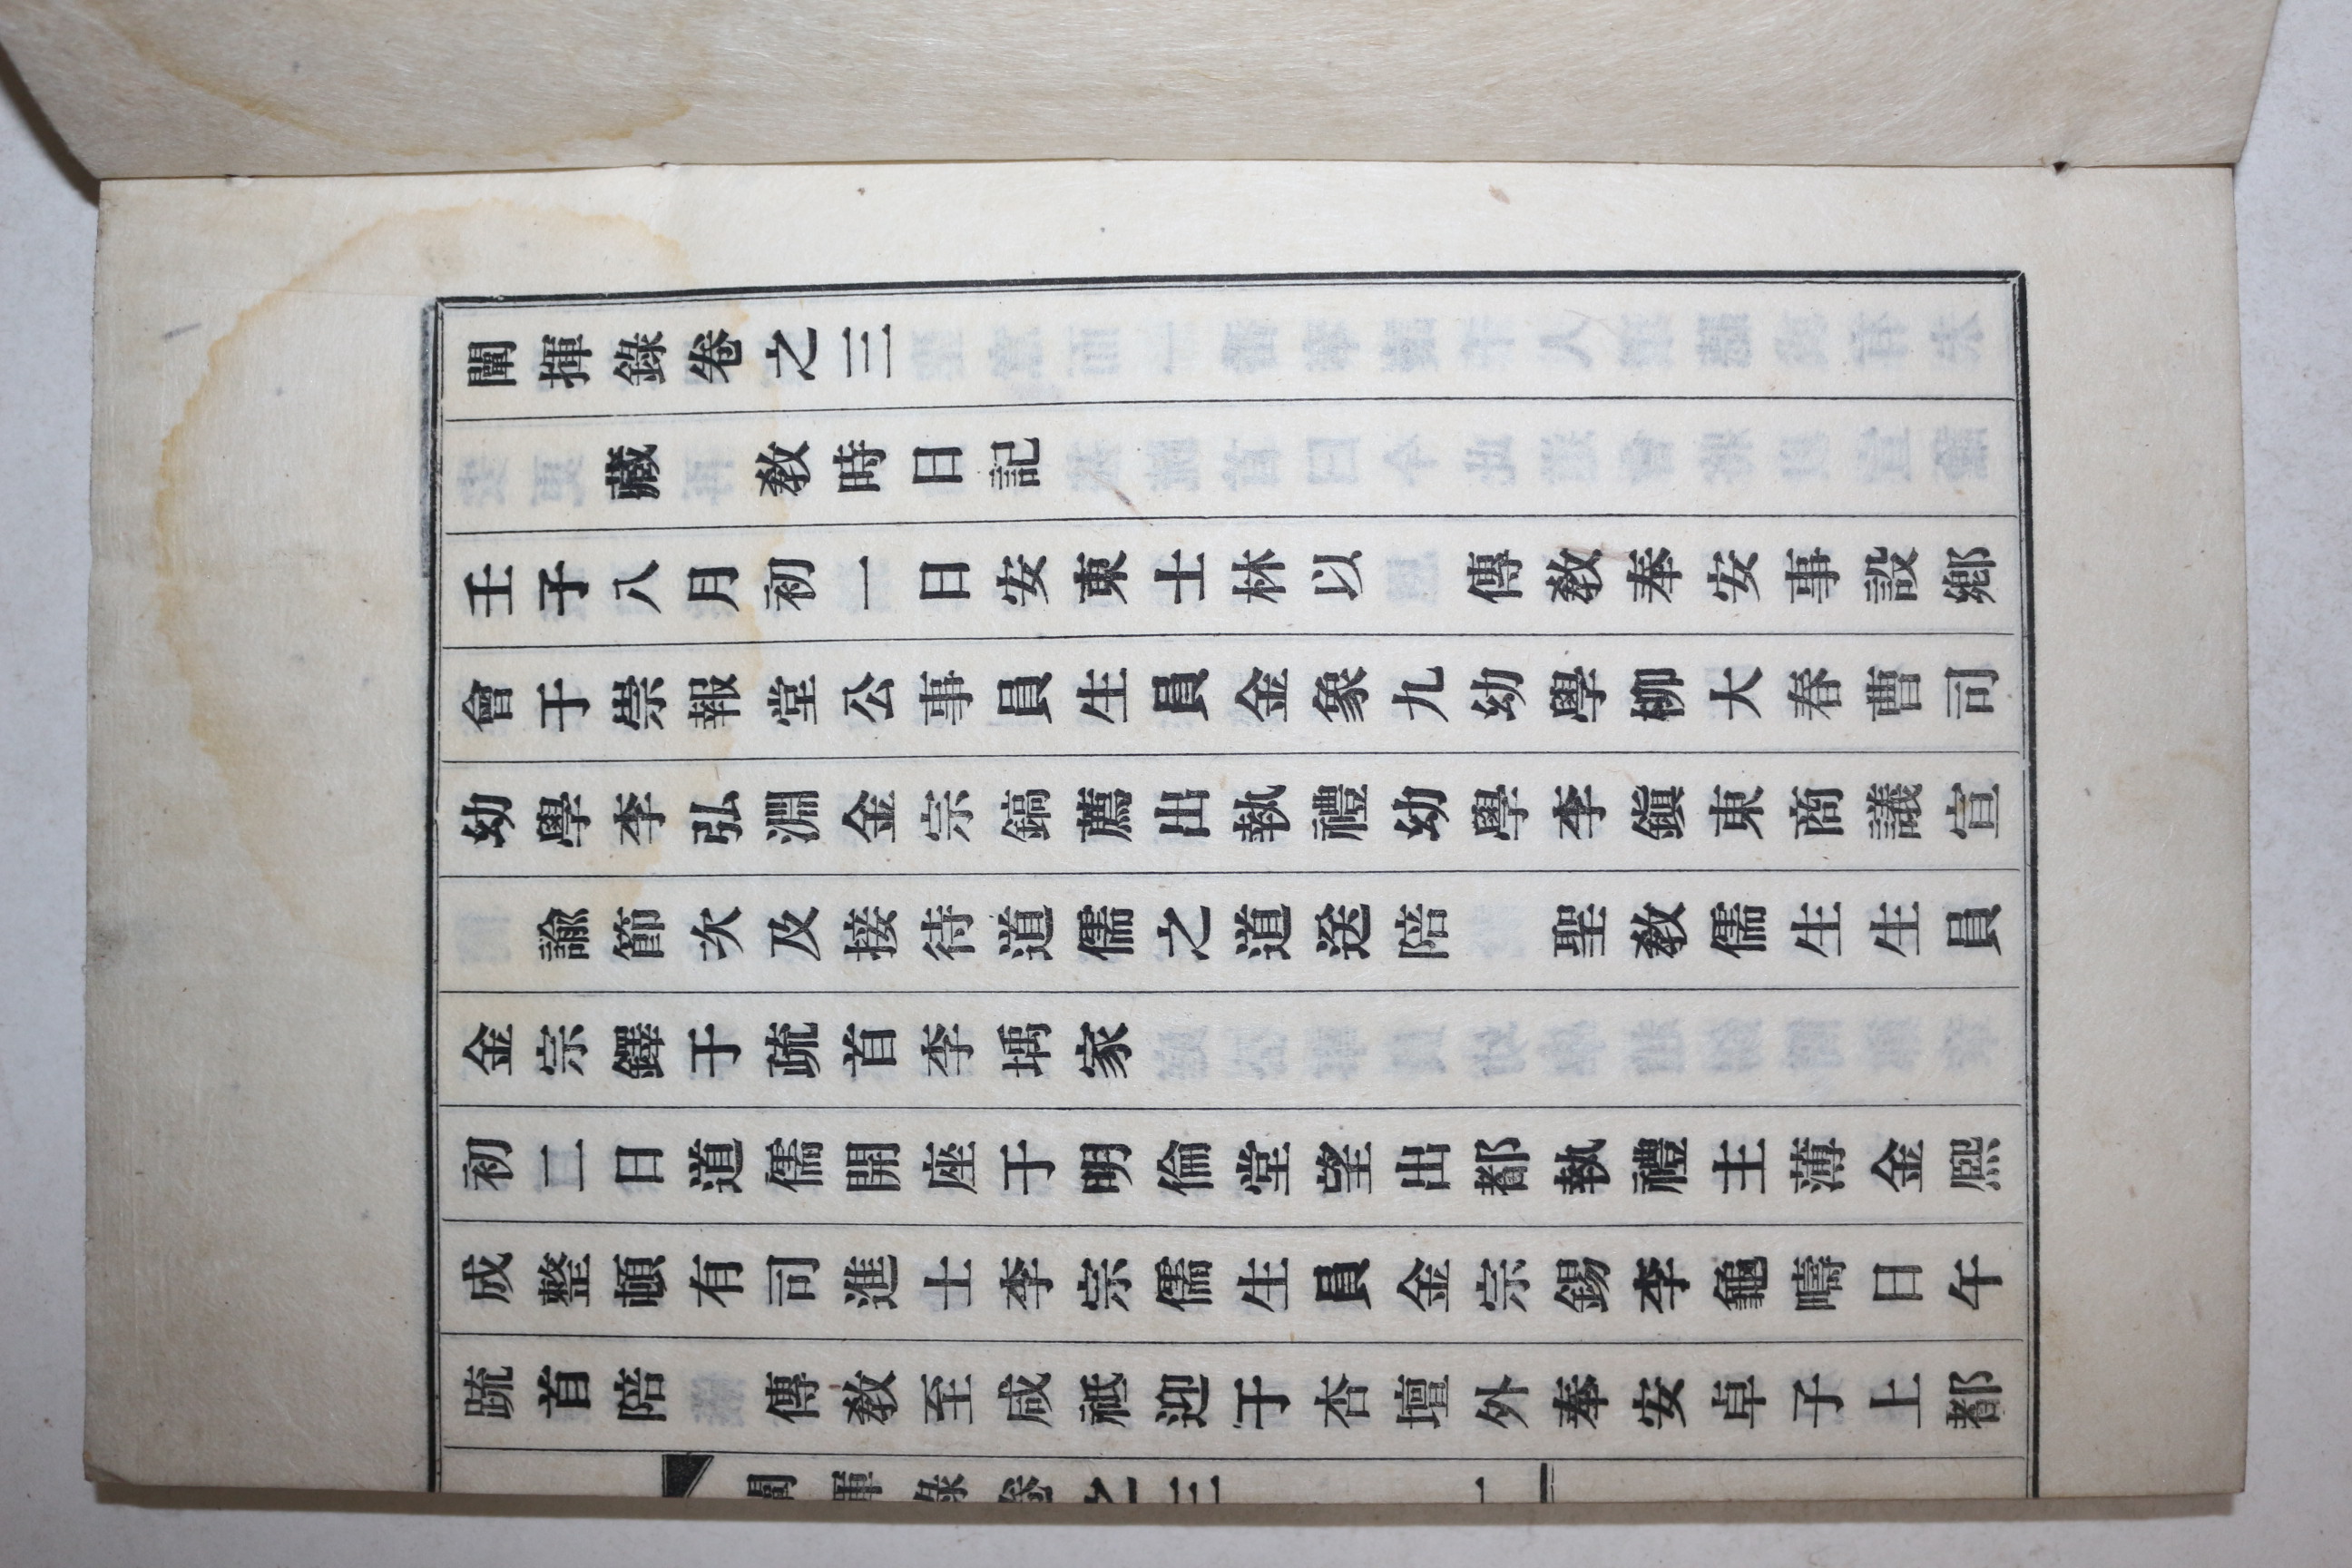 闡揮錄卷之三
藏 敎時日記
壬子八月初一日安東士林以 傳敎奉安事設鄉
會于崇報堂公事員生員金象九幼學柳大春曹司
幼學李弘淵金宗鎬薦出執禮幼學李鎭東商議宣
諭節次及接待道儒之道送陪 聖敎儒生生員
金宗鐸于疏首李㙖家
初二日道儒開座于明倫堂望出都執禮主簿金熙
成整頓有司進士李宗儒生員金宗錫李龜疇日午
疏首陪 傳敎至咸祗迎于杏壇外奉安卓子上都
闡揮錄卷之三 一